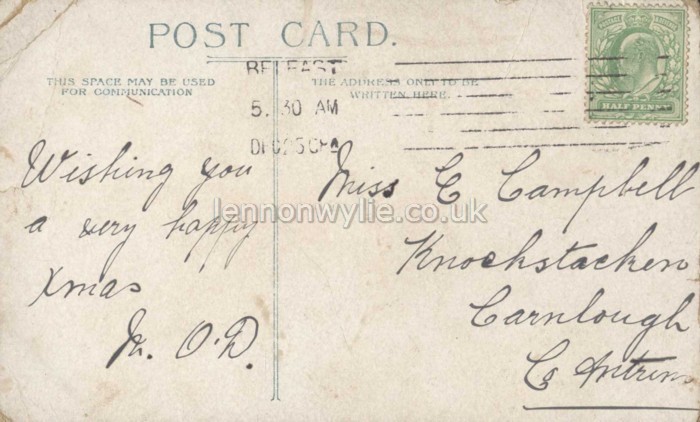 POST CARD.
THIS SPACE MAY BE USED
FOR COMMUNICATION
THE ADDRESS ONLY TO BE
WRITTEN HERE.
BELFAST
5. 30 AM
HALF PENNY
Wishing you
a very happy
Xmas
M. O'D.
Miss C Campbell
Knockstacken
Carnlough
Co Antrim
lennonwylie.co.uk